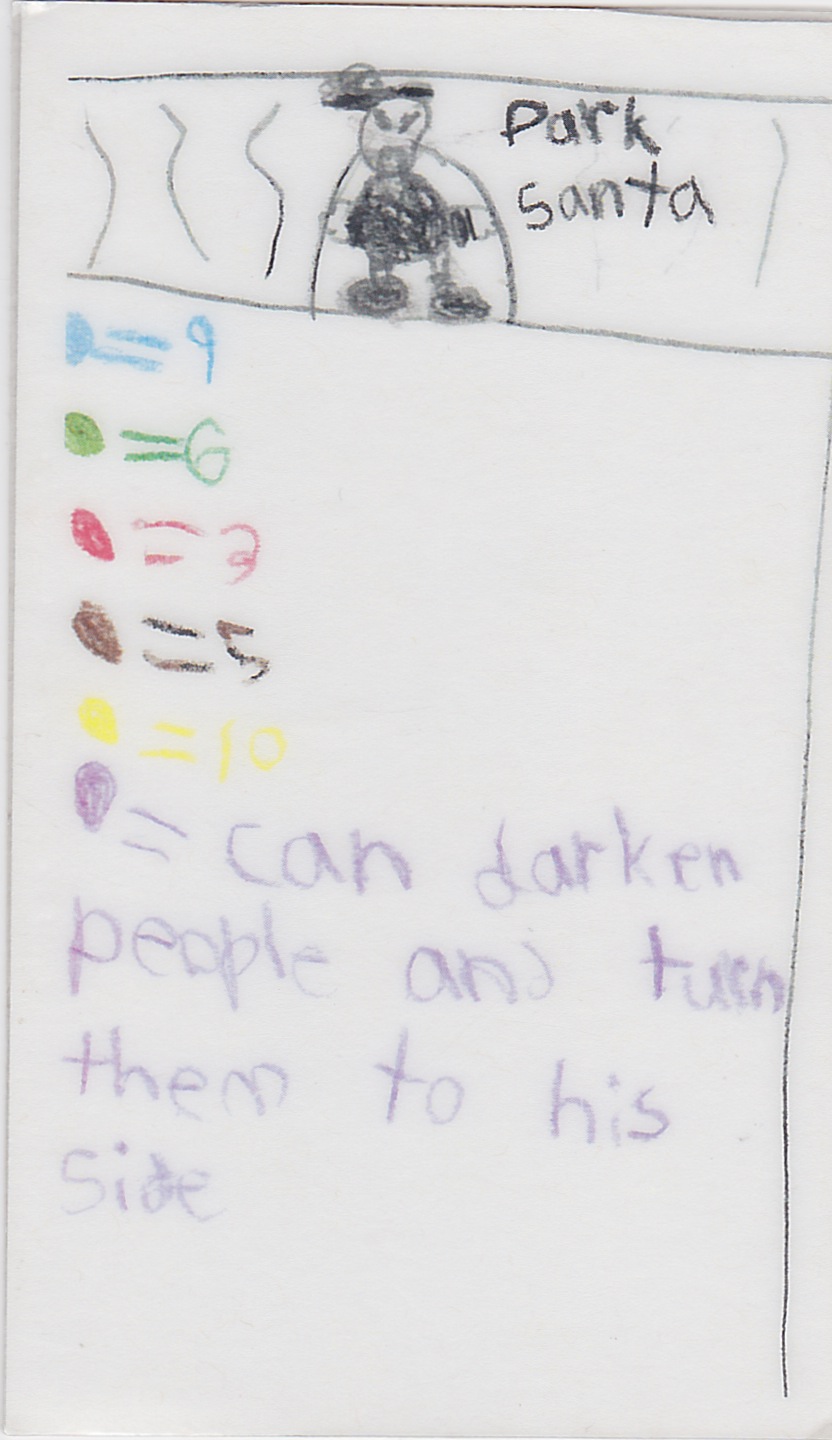 Park
santa
= 9
= 6
= 3
= 5
= 10
= can darken
people and turn
them to his
side